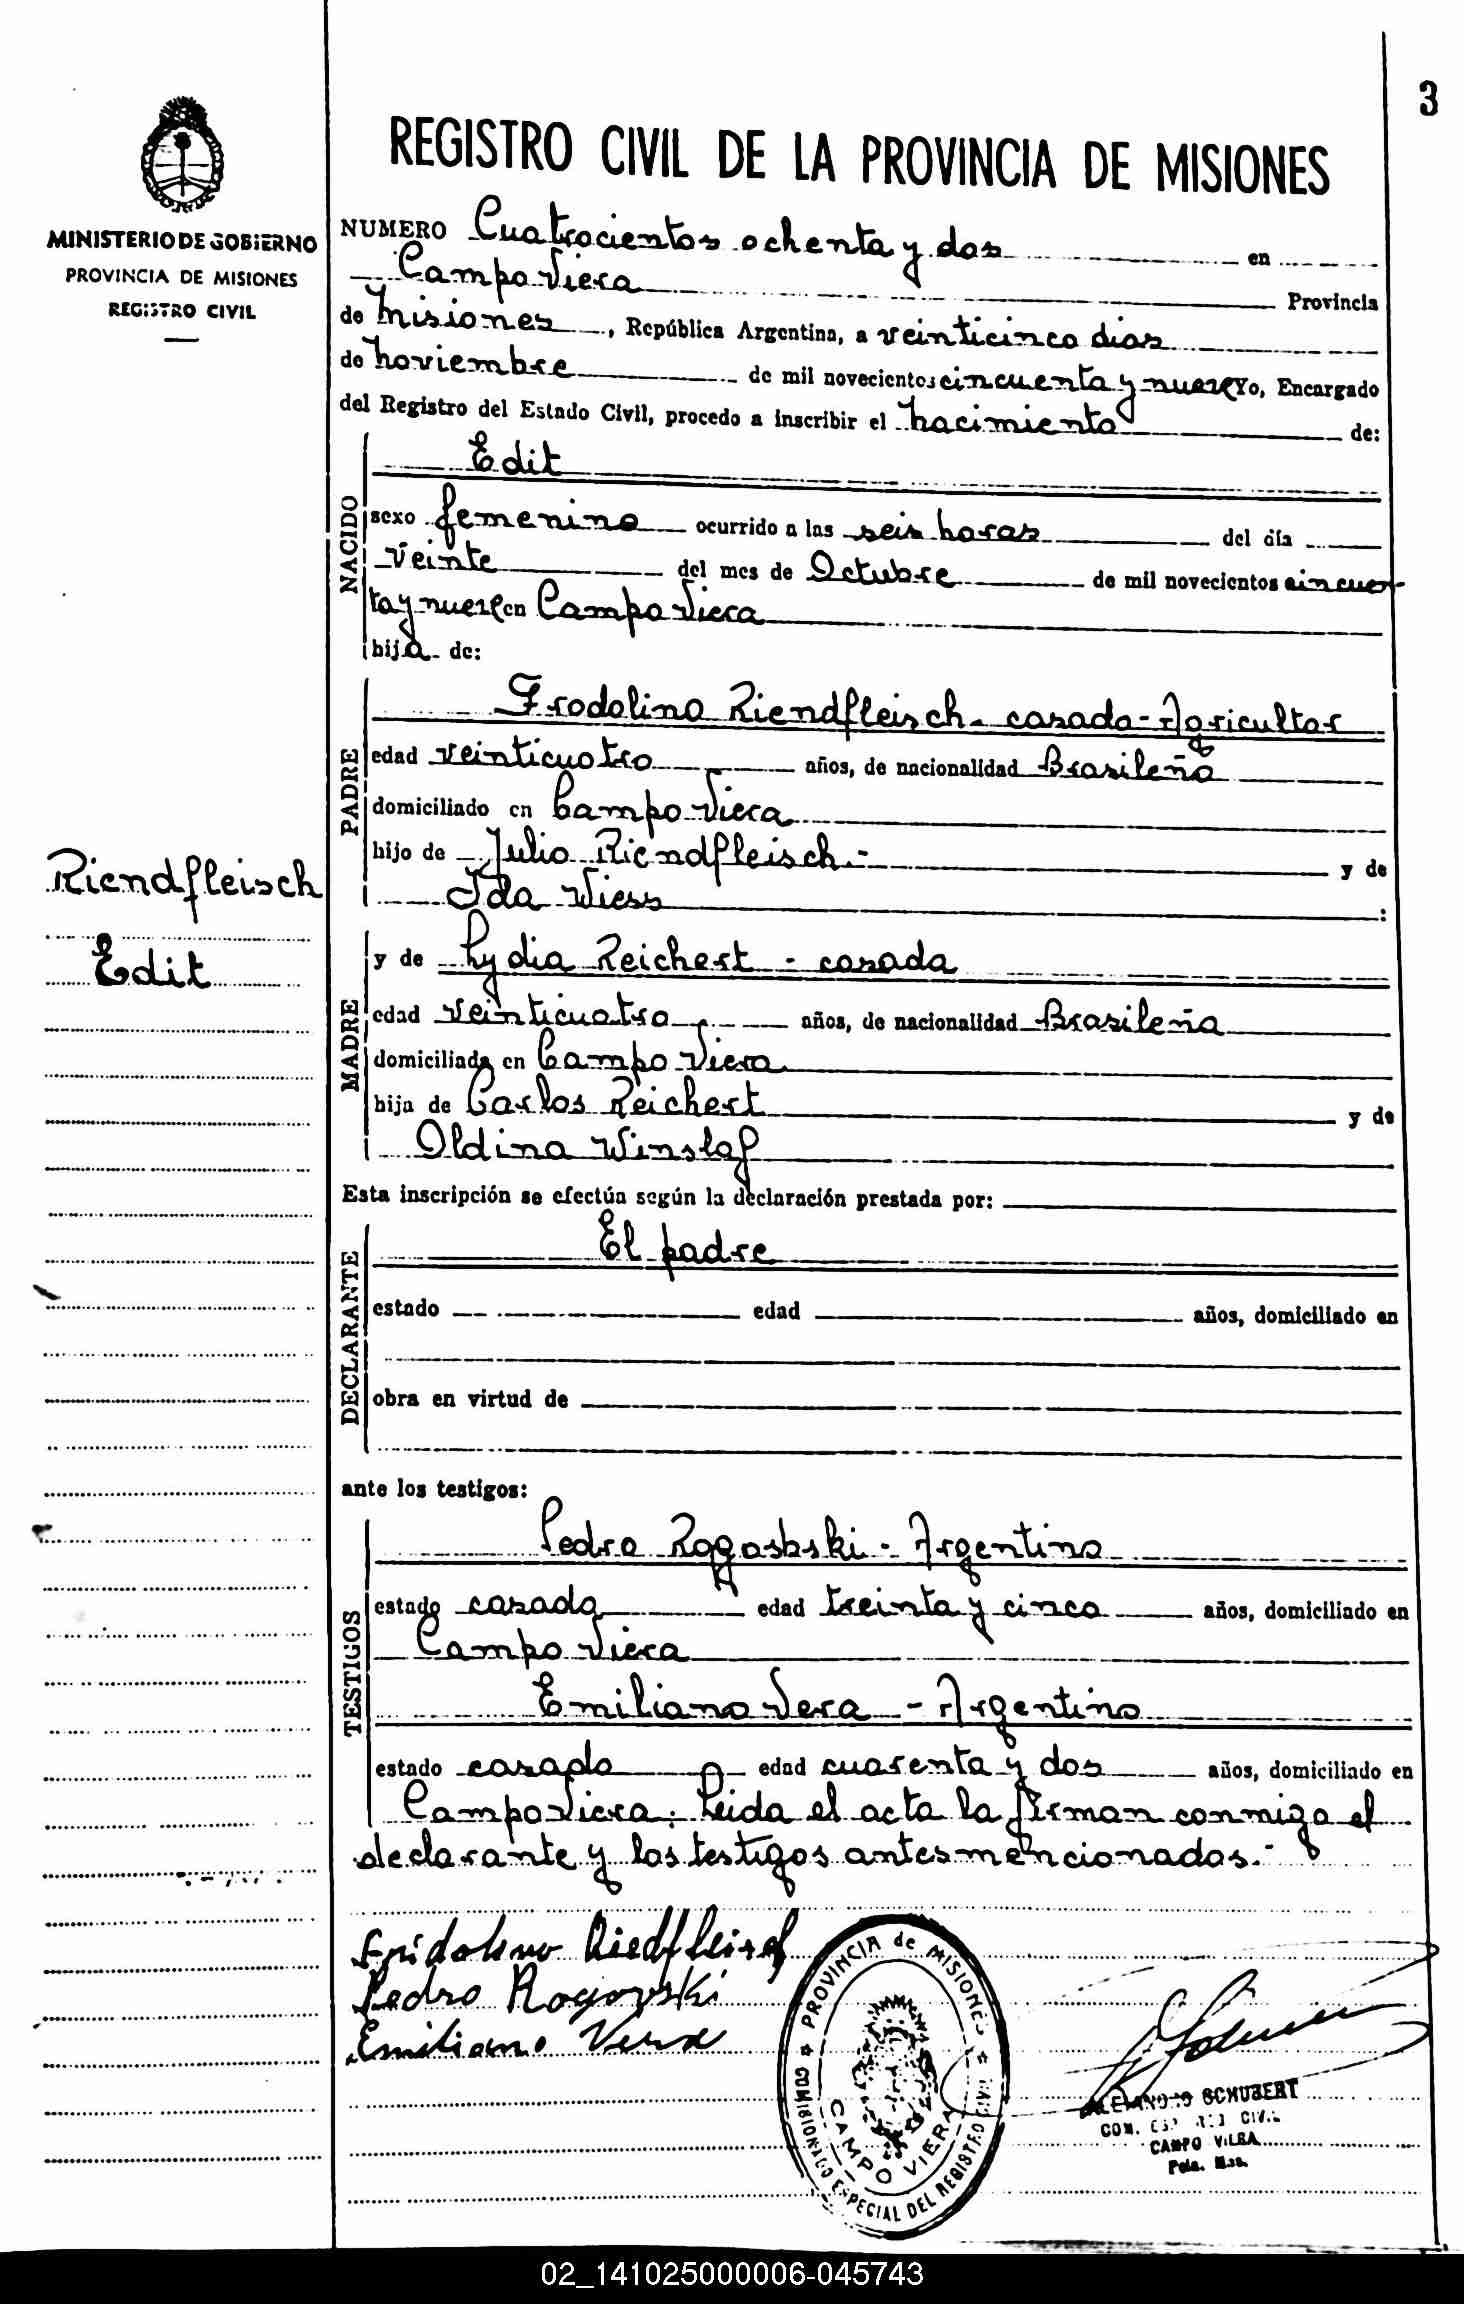 3
MINISTERIO DE GOBIERNO
PROVINCIA DE MISIONES
REGISTRO CIVIL
REGISTRO CIVIL DE LA PROVINCIA DE MISIONES
NUMERO Cuatrocientos ochenta y dos en
Campo Viera Provincia
de Misiones, República Argentina, a veinticinco dias
de noviembre de mil novecientos cincuenta y nueve Yo, Encargado
del Registro del Estado Civil, procedo a inscribir el nacimiento de:
NACIDO
Edit
sexo femenino ocurrido a las seis horas del día
veinte del mes de Octubre de mil novecientos cincuen-
ta y nueve en Campo Viera
hija de:
PADRE
Frodolino Riendfleisch - casado - Agricultor
edad veinticuatro años, de nacionalidad Brasileño
domiciliado en Campo Viera
hijo de Julio Riendfleisch.- y de
Ida Wiess :
Riendfleisch
Edit
MADRE
y de Lydia Reichert - casada
edad veinticuatro años, de nacionalidad Brasileña
domiciliada en Campo Viera
hija de Carlos Reichert y de
Oldina Winslaf
Esta inscripción se efectúa según la declaración prestada por:
DECLARANTE
El padre
estado edad años, domiciliado en
obra en virtud de
ante los testigos:
TESTIGOS
Pedro Rogasbski - Argentino
estado casado edad treinta y cinco años, domiciliado en
Campo Viera
Emiliano Vera - Argentino
estado casado edad cuarenta y dos años, domiciliado en
Campo Viera. Leida el acta la firman conmigo el
declarante y los testigos antes mencionados.-
Fridolino Riedfleisch
Pedro Rogozski
Emiliano Vera
PROVINCIA de MISIONES
COMISIONADO ESPECIAL DEL REGISTRO CIVIL
CAMPO VIERA
ALEJANDRO SCHUBERT
COM. ESP. REG. CIVIL
CAMPO VIERA
Pcia. Mns.
02_141025000006-045743